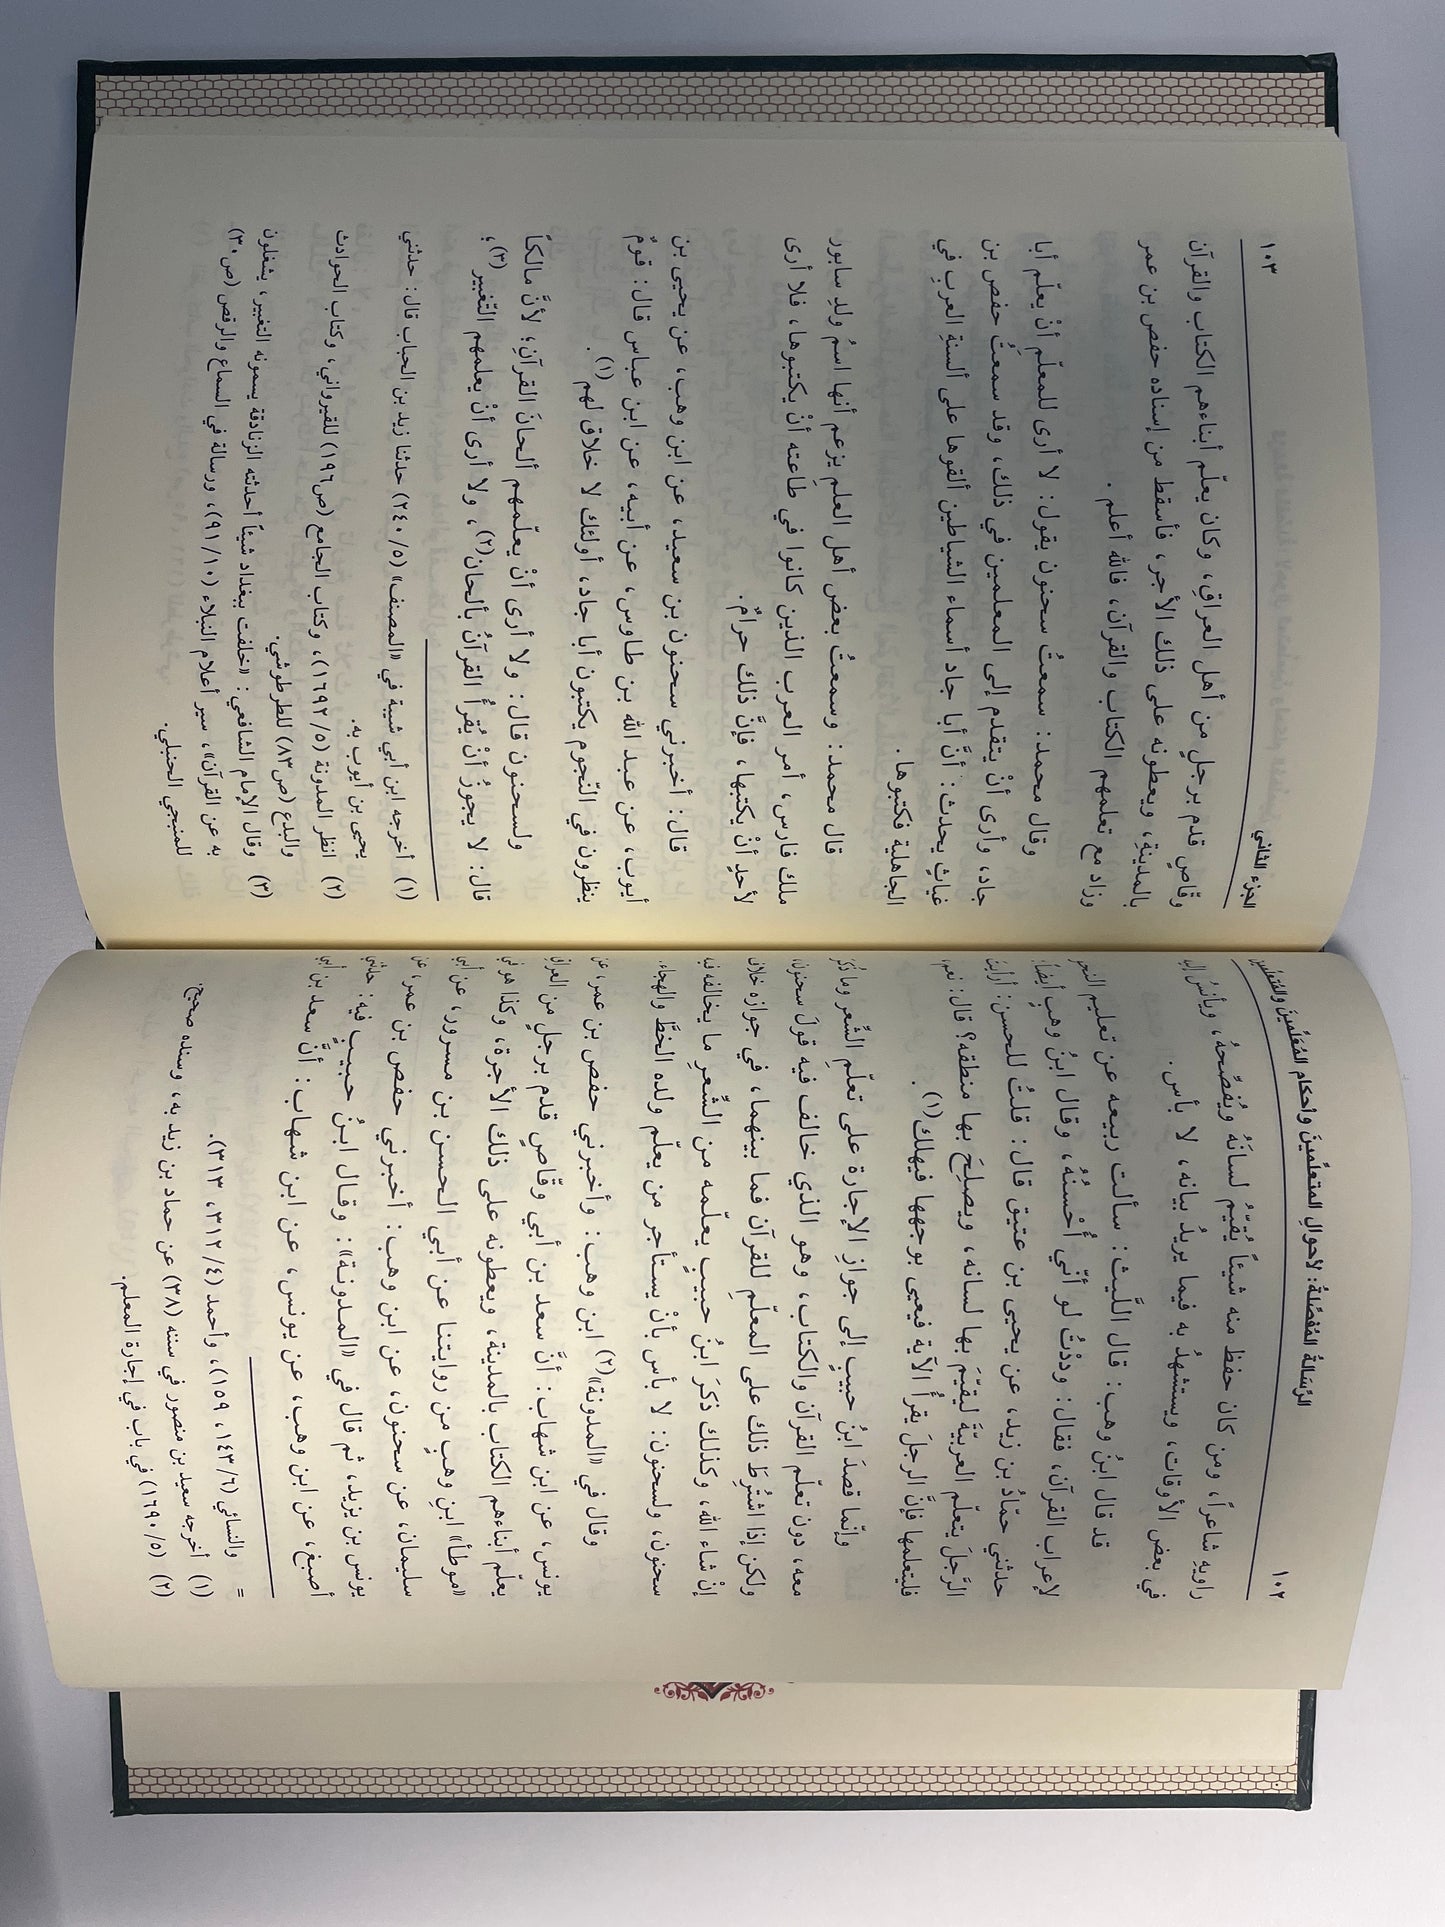 ١٠٢ الرِّسَالةُ المُفَصَّلةُ: لأحوالِ المتعلِّمينَ وأحكام المُعَلِّمينَ والمُتَعَلِّمينَ
راويهِ شاعراً، ومن كان حفظ منه شيئاً يُقيِّمُ لسانَهُ ويُفصِّحهُ، ويأنسُ
في بعض الأوقات، ويستشهدُ به فيما يريدُ بيانه، لا بأس.
قد قال ابنُ وهب: قال اللَّيث: سألت ربيعه عن تعليم
لإعراب القرآن، فقال: وددْتُ لو أنّي أُحْسنُهُ، وقال ابنُ وهبٍ أيضاً:
حدثني حمّادُ بن زيد، عن يحيى بن عتيق قال: قلتُ للحسن: أرأيتَ
الرَّجلَ يتعلّم العربيّةَ ليقيّمَ بها لسانه، ويصلِحَ بها منطقه؟ قال: نعم،
فليتعلمها فإنَّ الرجلَ يقرأُ الآية فيعيى بوجهها فيهلك(١).
وإنّما قصدَ ابنُ حبيبٍ إلى جوازِ الإجارة على تعلّمِ الشّعر وما ذُكرَ
معه، دون تعلّم القرآن والكتاب، وهو الذي خالف فيه قولَ سحنون،
ولكن إذا اشتُرِطَ ذلك على المعلّمِ للقرآن فما بينهما، في جوازه خلاف
إنْ شاء الله، وكذلك ذكرَ ابنُ حبيبٍ يعلّمه من الشّعرِ ما يخالفه فيه
سحنون، ولسحنون: لا بأس بأنْ يستأجر من يعلّم ولده الخطَّ والهجاء.
وقال في «المدونة»(٢) ابن وهب: وأخبرني حفص بن عمر، عن
يونس، عن ابن شهاب: أنَّ سعد بن أبي وقّاصٍ قدم برجلٍ من العراق
يعلّم أبناءهم الكتاب بالمدينة، ويعطونه على ذلك الأجرة، وكذا هو في
«موطأ» ابنِ وهبٍ من روايتنا عن أبي الحسن بن مسرور، عن أبي
سليمان، عن سحنون، عن ابن وهب: أخبرني حفص بن عمر، عن
يونس بن يزيد، ثم قال في «المدونة»: وقال ابنُ حبيبٍ فيه: حدثني
أصبغ، عن ابن وهب، عن يونس، عن ابن شهاب: أنَّ سعد بن أبي
= والنسائي (٦/ ١٤٣، ١٥٩)، وأحمد (٤/ ٣١٢، ٣١٣).
(١) أخرجه سعيد بن منصور في سننه (٣٨) عن حماد بن زيد به، وسنده صحيح.
(٢) (٥/ ١٦٩٠) في باب في إجارة المعلم.
الجزء الثاني ١٠٣
وقّاصٍ قدم برجلٍ من أهل العراقِ، وكان يعلّم أبناءهم الكتاب والقرآن
بالمدينةِ، ويعطونه على ذلك الأجر، فأسقط من إسناده حفص بن عمر
وزاد مع تعلمهم الكتاب والقرآن، فالله أعلم.
وقال محمد: سمعتُ سحنون يقول: لا أرى للمعلّم أنْ يعلّم أبا
جاد، وأرى أنْ يتقدم إلى المعلمين في ذلك، وقد سمعتُ حفص بن
غياثٍ يحدث: أنَّ أبا جاد أسماء الشياطين ألقوها على ألسنةِ العربِ في
الجاهلية فكتبوها.
قال محمد: وسمعتُ بعض أهل العلم يزعم أنها اسمُ ولدِ سابور
ملك فارس، أمر العرب الذين كانوا في طاعته أنْ يكتبوها، فلا أرى
لأحدٍ أنْ يكتبها، فإنَّ ذلك حرامٌ.
قال: أخبرني سحنون بن سعيد، عن ابن وهب، عن يحيى بن
أيوب، عن عبد الله بن طاوس، عن أبيه، عن ابن عباس قال: قومٌ
ينظرون في النّجوم يكتبون أبا جاد، أولئك لا خلاق لهم(١).
ولسحنون قال: ولا أرى أنْ يعلّمهم ألحانَ القرآنِ؛ لأنَّ مالكاً
قال: لا يجوزُ أنْ يُقرأُ القرآنُ بألحان(٢)، ولا أرى أنْ يعلمهم التّغبير(٣)؛
(١) أخرجه ابن أبي شيبة في «المصنف» (٥/ ٢٤٠) حدثنا زيد بن الحباب قال: حدثني
يحيى بن أيوب به.
(٢) انظر المدونة (٥/ ١٦٩٢)، وكتاب الجامع (ص١٩٦) للقيرواني، وكتاب الحوادث
والبدع (ص٨٣) للطرطوشي.
(٣) وقال الإمام الشافعي: «خلفت ببغداد شيئاً أحدثته الزنادقة يسمونه التغبير، يشغلون
به عن القرآن»، سير أعلام النبلاء (١٠/ ٩١)، ورسالة في السماع والرقص (ص٣٠)
للمنبجي الحنبلي.